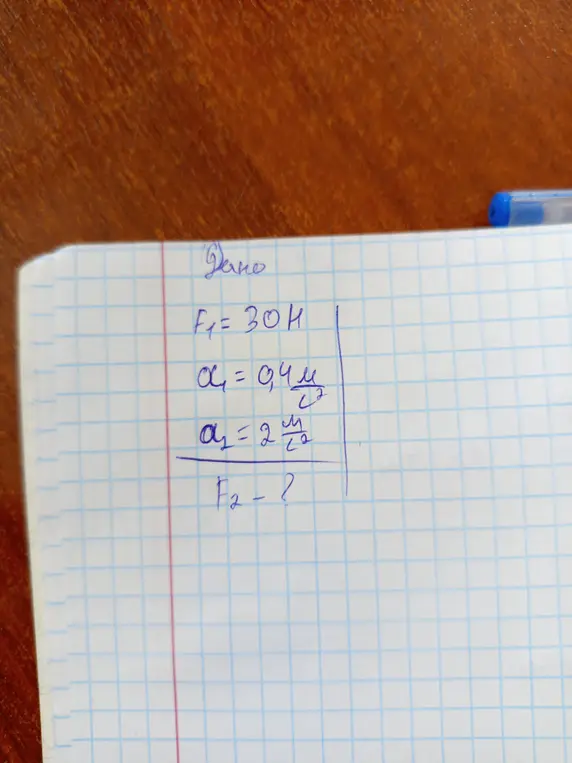 Дано
F₁ = 30 Н
a₁ = 0,4 м/с²
a₂ = 2 м/с²
F₂ - ?